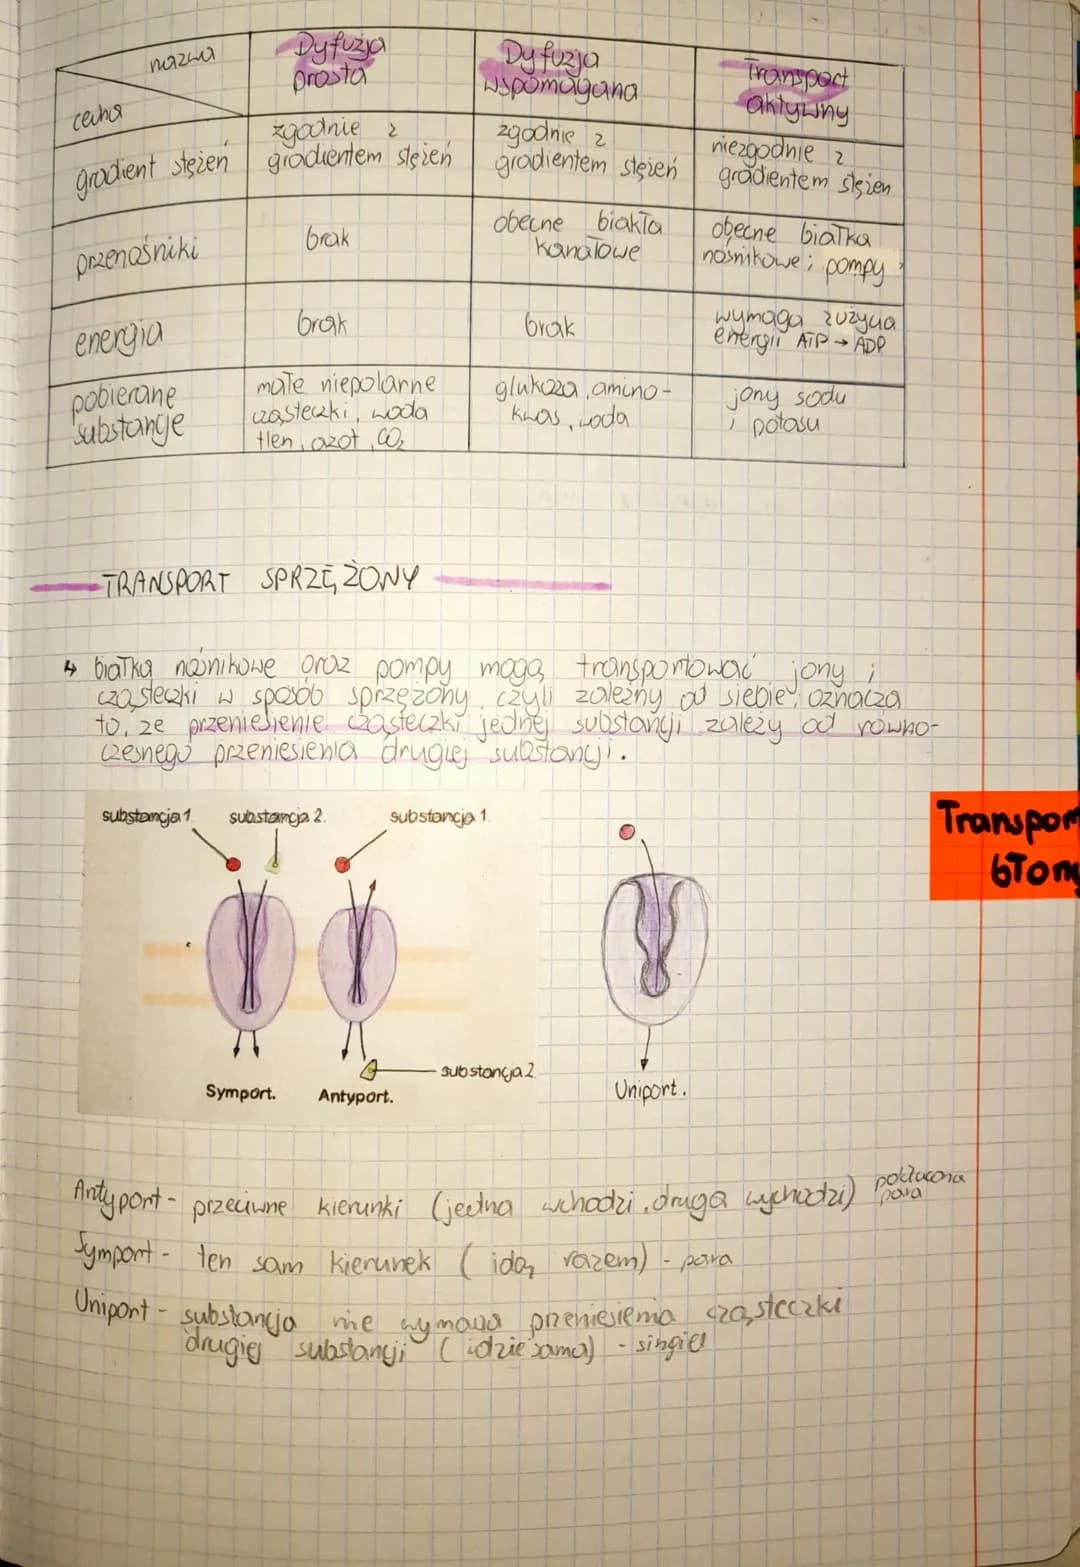 nazwa
cecha
Dyfuzja
prosta
Dyfuzja
wspomagana
Transport
aktywny
gradient stężeń
zgodnie z
gradientem stężeń
zgodnie z
gradientem stężeń
niezgodnie z
gradientem stężen
przenośniki
brak
obecne białka
kanałowe
obecne białka
nośnikowe i pompy
energia
brak
brak
wymaga zużycia
energii ATP → ADP
pobierane
substancje
małe niepolarne
cząsteczki, woda
tlen, azot, CO₂
glukoza, amino-
kwas, woda
jony sodu
i potasu
TRANSPORT SPRZĘŻONY
↳ białka nośnikowe oraz pompy mogą transportować jony i
cząsteczki w sposób sprzężony, czyli zależny od siebie, oznacza
to, że przeniesienie cząsteczki jednej substancji zależy od równo-
czesnego przeniesienia drugiej substancji.
substancja 1. substancja 2. substancja 1.
substancja 2.
Symport. Antyport.
Uniport.
Transport
błony
Antyport - przeciwne kierunki (jedna wchodzi, druga wychodzi) pokłócona
para
Symport - ten sam kierunek (idą razem) - para
Uniport - substancja nie wymaga przeniesienia cząsteczki
drugiej substancji (idzie sama) - singiel